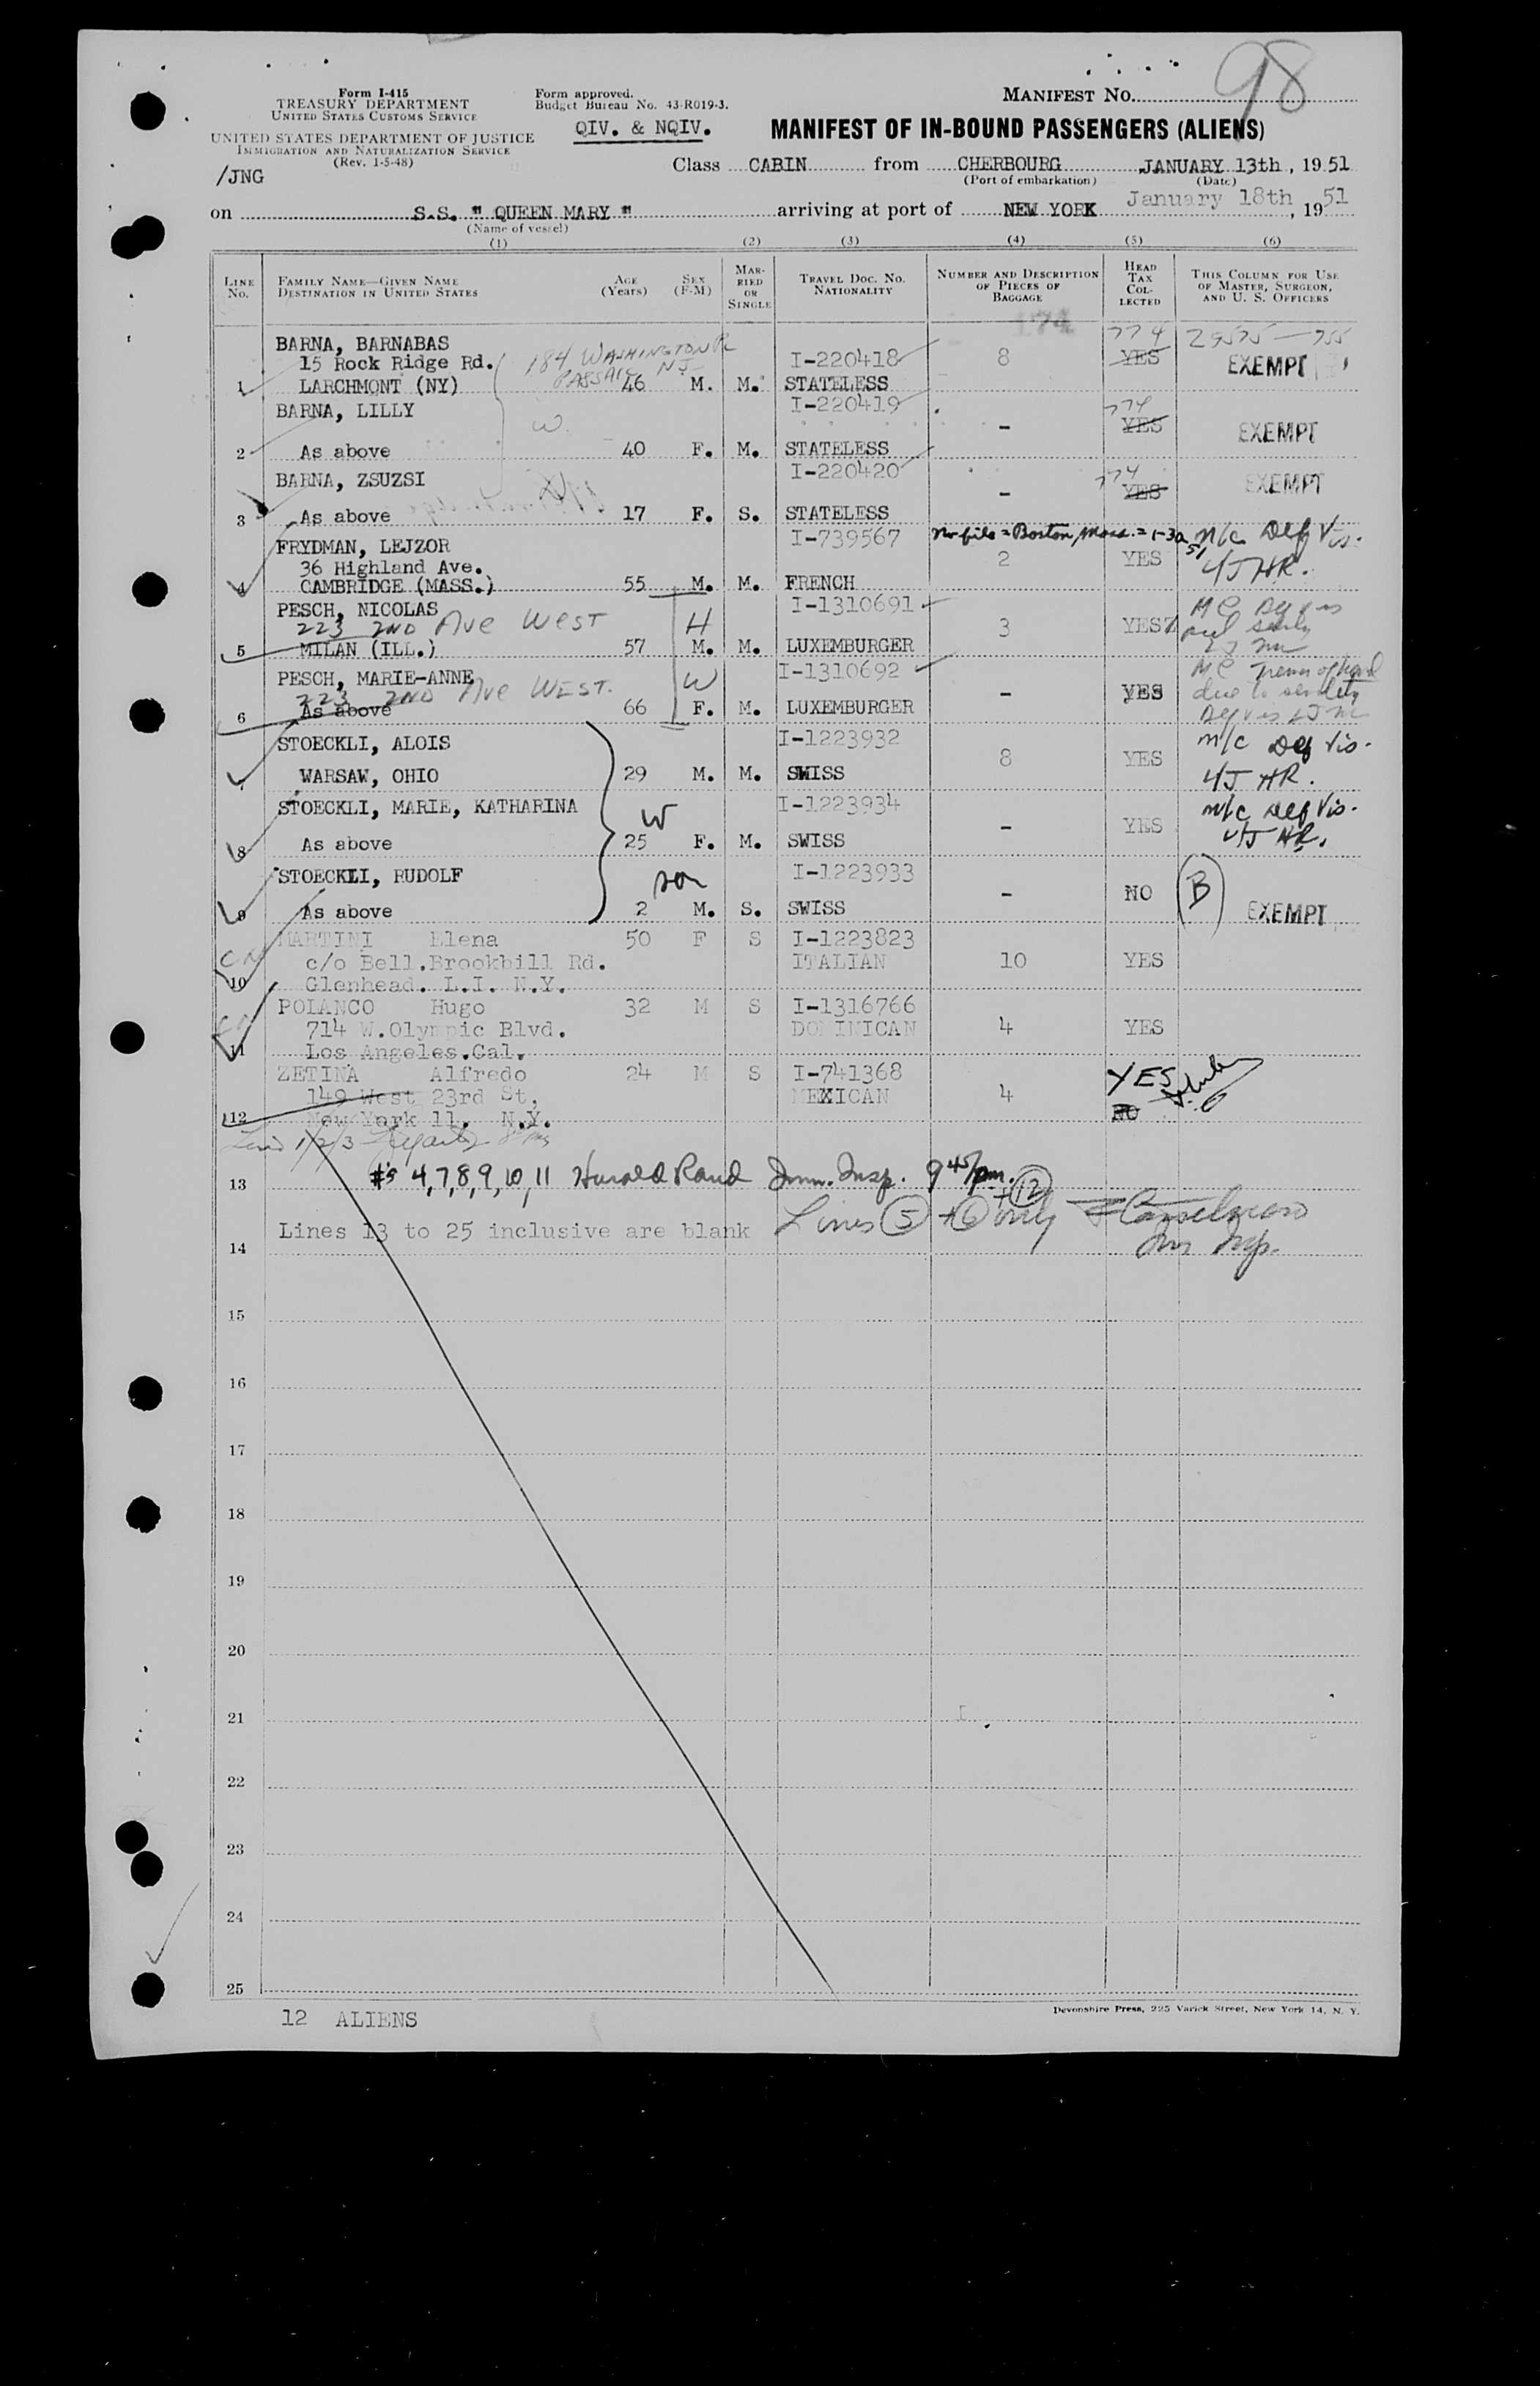 98
Form I-415
TREASURY DEPARTMENT
UNITED STATES CUSTOMS SERVICE
UNITED STATES DEPARTMENT OF JUSTICE
IMMIGRATION AND NATURALIZATION SERVICE
(Rev. 1-5-48)
/JNG
Form approved.
Budget Bureau No. 43-R019-3.
QIV. & NQIV.
MANIFEST NO.
MANIFEST OF IN-BOUND PASSENGERS (ALIENS)
Class CABIN from CHERBOURG, JANUARY 13th, 1951
(Port of embarkation) (Date)
on S.S. " QUEEN MARY " arriving at port of NEW YORK January 18th, 1951
(Name of vessel)
(1) (2) (3) (4) (5) (6)
LINE NO. FAMILY NAME—GIVEN NAME DESTINATION IN UNITED STATES AGE (Years) SEX (F-M) MARRIED OR SINGLE TRAVEL DOC. NO. NATIONALITY NUMBER AND DESCRIPTION OF PIECES OF BAGGAGE HEAD TAX COLLECTED THIS COLUMN FOR USE OF MASTER, SURGEON, AND U. S. OFFICERS
174
BARNA, BARNABAS 774
15 Rock Ridge Rd. 184 WASHINGTON PL I-220418 8 YES EXEMPT
PASSAIC NJ
1 LARCHMONT (NY) 46 M. M. STATELESS
BARNA, LILLY W. I-220419 - 774 YES EXEMPT
2 As above 40 F. M. STATELESS
BARNA, ZSUZSI I-220420 - 774 YES EXEMPT
3 As above 17 F. S. STATELESS
FRYDMAN, LEJZOR I-739567 No file = Boston, Mass. = 1-30 51 M/c Def Vis.
36 Highland Ave. 2 YES 4/J HR.
4 CAMBRIDGE (MASS.) 55 M. M. FRENCH
PESCH, NICOLAS I-1310691 3 YES
223 2ND Ave West H
5 MILAN (ILL.) 57 M. M. LUXEMBURGER
PESCH, MARIE-ANNE I-1310692 - YES
223 2ND Ave WEST. W due to senility
6 As above 66 F. M. LUXEMBURGER
STOECKLI, ALOIS I-1223932 8 YES M/c Def Vis.
WARSAW, OHIO 29 M. M. SWISS 4/J HR.
STOECKLI, MARIE, KATHARINA W I-1223934 - YES M/c Def Vis.
8 As above 25 F. M. SWISS 4/J HR.
STOECKLI, RUDOLF son I-1223933 - NO B EXEMPT
9 As above 2 M. S. SWISS
MARTINI Elena 50 F S I-1223823
c/o Bell.Brookbill Rd. ITALIAN 10 YES
10 Glenhead. L.I. N.Y.
POLANCO Hugo 32 M S I-1316766
714 W.Olympic Blvd. DOMINICAN 4 YES
11 Los Angeles.Cal.
ZETINA Alfredo 24 M S I-741368 YES
149 West 23rd St, MEXICAN 4 NO
12 New York 11. N.Y.
13 #s 4,7,8,9,10,11 Harold Rand Imm. Insp. 9 45/pm.
Lines 13 to 25 inclusive are blank Lines 5 + 6 only + 12
14 Imm Insp.
15
16
17
18
19
20
21
22
23
24
25
12 ALIENS
Devonshire Press, 225 Varick Street, New York 14, N. Y.